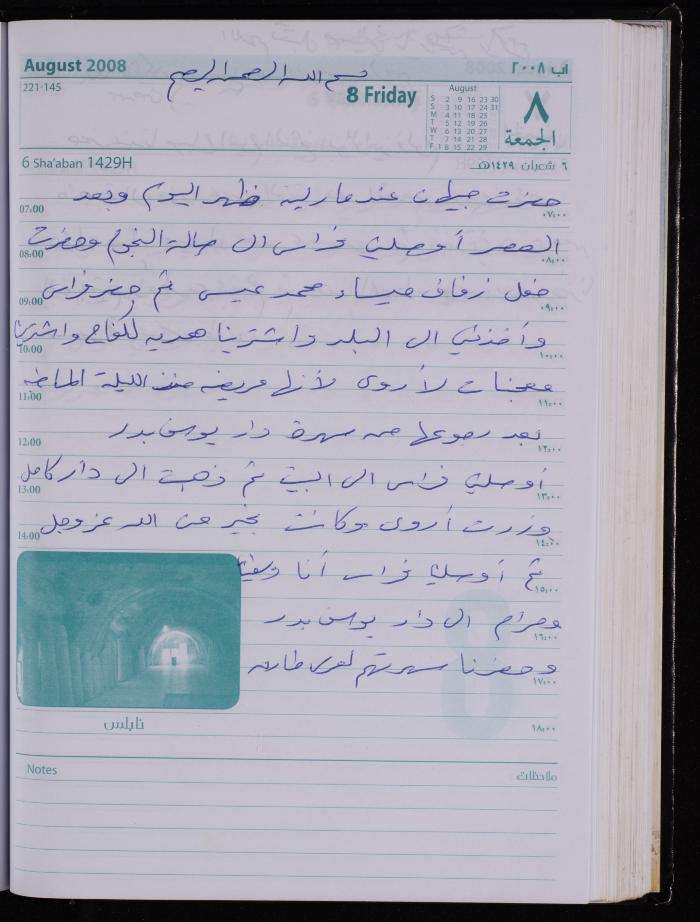 August 2008
آب ٢٠٠٨
بسم الله الرحمن الرحيم
221-145
8 Friday
August
S 2 9 16 23 30
S 3 10 17 24 31
M 4 11 18 25
T 5 12 19 26
W 6 13 20 27
T 7 14 21 28
F 1 8 15 22 29
٨
الجمعة
6 Sha'aban 1429H
٦ شعبان ١٤٢٩هـ
حضرت جيلان عند مارية ظهر اليوم وبعد
07:00 ٠٧:٠٠
العصر أوصلني فراس الى صالة النجوم وحضرت
08:00 ٠٨:٠٠
حفل زفاف ميساء محمد عيسى ثم حضر فراس
09:00 ٠٩:٠٠
وأخذني الى البلد واشترينا هدية لكفاح واشترينا
10:00 ١٠:٠٠
معجنات لأروى لأنها مريضة منذ الليلة الماضية
11:00 ١١:٠٠
بعد رجوعها من سهرة دار يوسف بدر
12:00 ١٢:٠٠
أوصلني فراس الى البيت ثم ذهبت الى دار كامل
13:00 ١٣:٠٠
وزرت أروى وكانت بخير من الله عز وجل
14:00 ١٤:٠٠
ثم أوصلني فراس أنا
١٥:٠٠
ومرام الى دار يوسف بدر
١٦:٠٠
وحضرنا سهرتهم
١٧:٠٠
نابلس
١٨:٠٠
Notes
ملاحظات